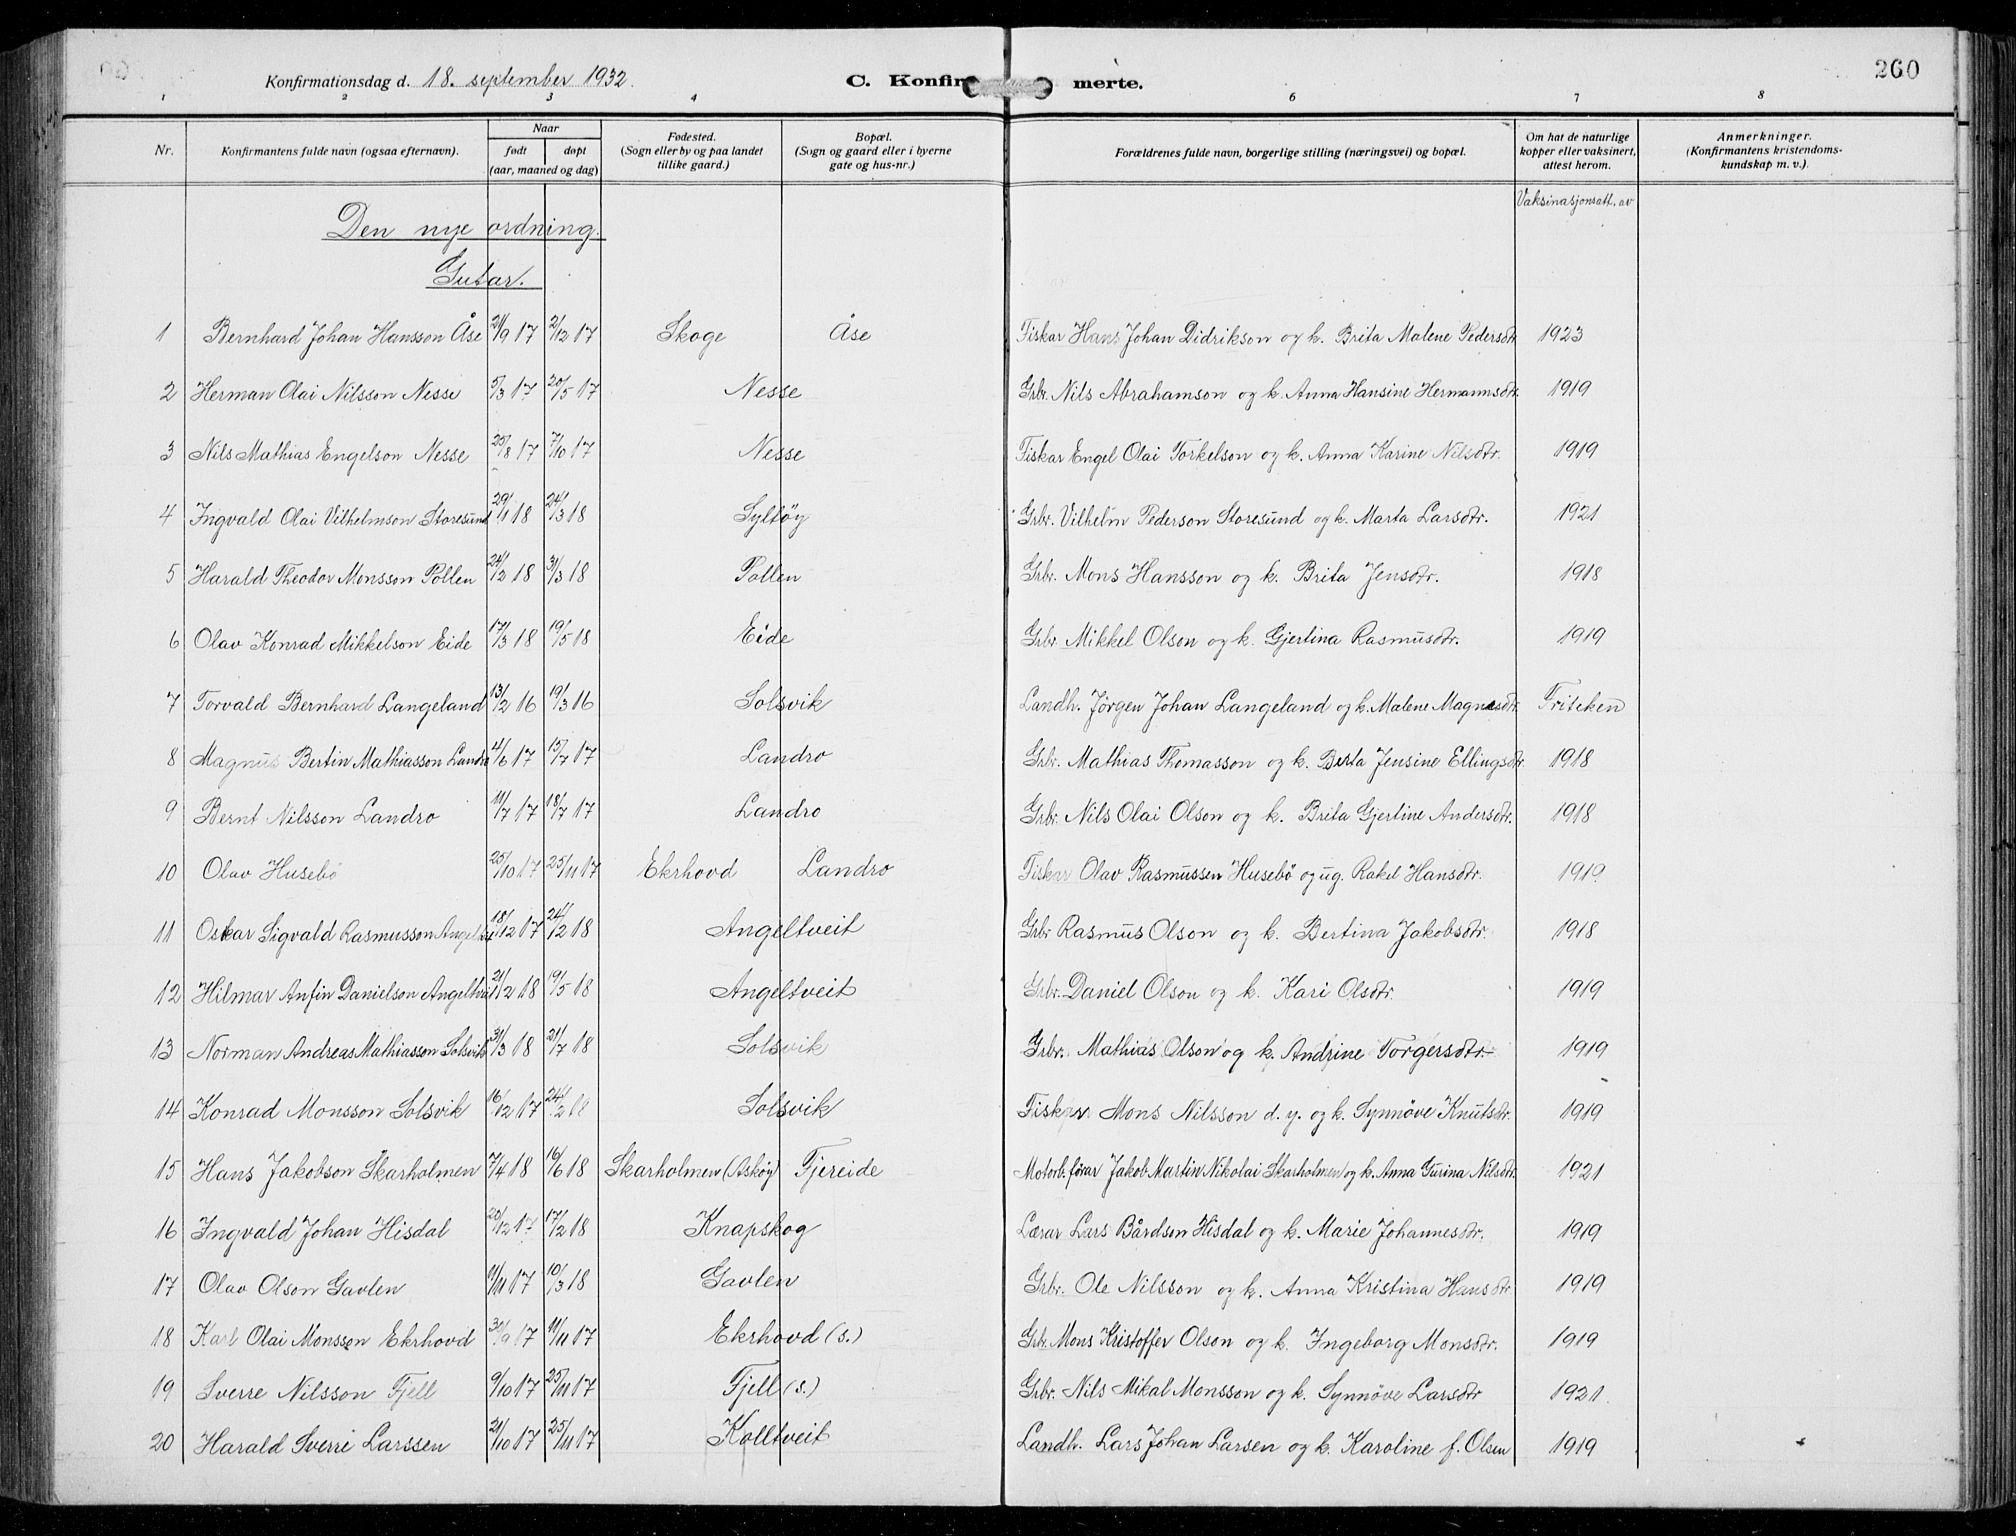 Konfirmationsdag d. 18. september 1932. C. Konfirmerte. 260
1 2 3 4 6 7 8
Nr. Konfirmantens fulde navn (ogsaa efternavn). Naar født døpt (aar, maaned og dag) Fødested. (Sogn eller by og paa landet tillike gaard.) Bopæl. (Sogn og gaard eller i byerne gate og hus-nr.) Forældrenes fulde navn, borgerlige stilling (næringsvei) og bopæl. Om hat de naturlige kopper eller vaksinert, attest herom. Anmerkninger. (Konfirmantens kristendomskundskap m. v.).
Vaksinasjonsatt. av
Den nye ordning.
Gutar.
1 Bernhard Johan Hansson Åse 21/9 17 2/12 17 Skoge Åse Fiskar Hans Johan Didrikson og k. Brita Malene Pedersdtr 1923
2 Herman Olai Nilsson Nesse 5/3 17 20/5 17 Nesse Grbr. Nils Abrahamson og k. Anna Hansine Hermannsdtr. 1919
3 Nils Mathias Engelson Nesse 25/8 17 7/10 17 Nesse Fiskar Engel Olai Torkelson og k. Anna Karine Nilsdtr. 1919
4 Ingvald Olai Vilhelmson Storesund 29/1 18 24/3 18 Syltøy Grbr. Vilhelm Pederson Storesund og k. Marta Larsdtr. 1921
5 Harald Theodor Monsson Pollen 24/2 18 31/3 18 Pollen Grbr. Mons Hansson og k. Brita Jensdtr. 1918
6 Olav Konrad Mikkelson Eide 17/3 18 19/5 18 Eide Grbr. Mikkel Olson og k. Gjertina Rasmusdtr. 1919
7 Torvald Bernhard Langeland 13/2 16 19/3 16 Solsvik Landh. Jörgen Johan Langeland og k. Malene Magnesdtr. Friteken
8 Magnus Bertin Mathiasson Landro 4/6 17 15/7 17 Landro Grbr. Mathias Thomasson og k. Berta Jensine Ellingsdtr. 1918
9 Bernt Nilsson Landro 11/7 17 18/7 17 Landro Grbr. Nils Olai Olson og k. Brita Gjertine Andersdtr. 1918
10 Olav Husebö 25/10 17 25/11 17 Ekrhovd Landro Fiskar Olav Rasmussen Husebö og ug. Rakel Hansdtr. 1919
11 Oskar Sigvald Rasmusson Angeltveit 18/12 17 24/2 18 Angeltveit Grbr Rasmus Olson og k. Bertina Jakobsdtr. 1918
12 Hilmar Anfin Danielson Angeltveit 21/2 18 19/5 18 Angeltveit Grbr. Daniel Olson og k. Kari Olsdtr. 1919
13 Norman Andreas Mathiasson Solsvik 31/3 18 21/7 18 Solsvik Grbr. Mathias Olson og k. Andrine Torgersdtr. 1919
14 Konrad Monsson Solsvik 16/12 17 24/2 18 Solsvik Fiskar. Mons Nilsson d. y. og k. Synnöve Knutsdtr. 1919
15 Hans Jakobson Skarholmen 7/4 18 16/6 18 Skarholmen (Askøy) Fjereide Motorb.förar Jakob Martin Nikolai Skarholmen og k. Anna Gurina Nilsdtr. 1921
16 Ingvald Johan Hisdal 20/12 17 17/2 18 Knapskog Lærar Lars Bårdson Hisdal og k. Marie Johannesdtr. 1919
17 Olav Olson Gavlen 11/11 17 10/3 18 Gavlen Grbr. Ole Nilsson og k. Anna Kristina Hansdtr 1919
18 Karl Olai Monsson Ekrhovd 30/9 17 11/11 17 Ekrhovd (s.) Grbr. Mons Kristoffer Olson og k. Ingeborg Monsdtr. 1919
19 Sverre Nilsson Fjell 9/10 17 25/11 17 Fjell (s.) Grbr. Nils Mikal Monsson og k. Synnöve Larsdtr 1921.
20 Harald Sverre Larssen 21/10 17 25/11 17 Kolltveit Landh. Lars Johan Larsen og k. Karoline f. Olsen 1919